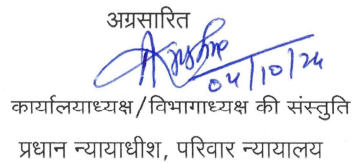 अग्रसारित
04/10/24
कार्यालयाध्यक्ष/विभागाध्यक्ष की संस्तुति
प्रधान न्यायाधीश, परिवार न्यायालय